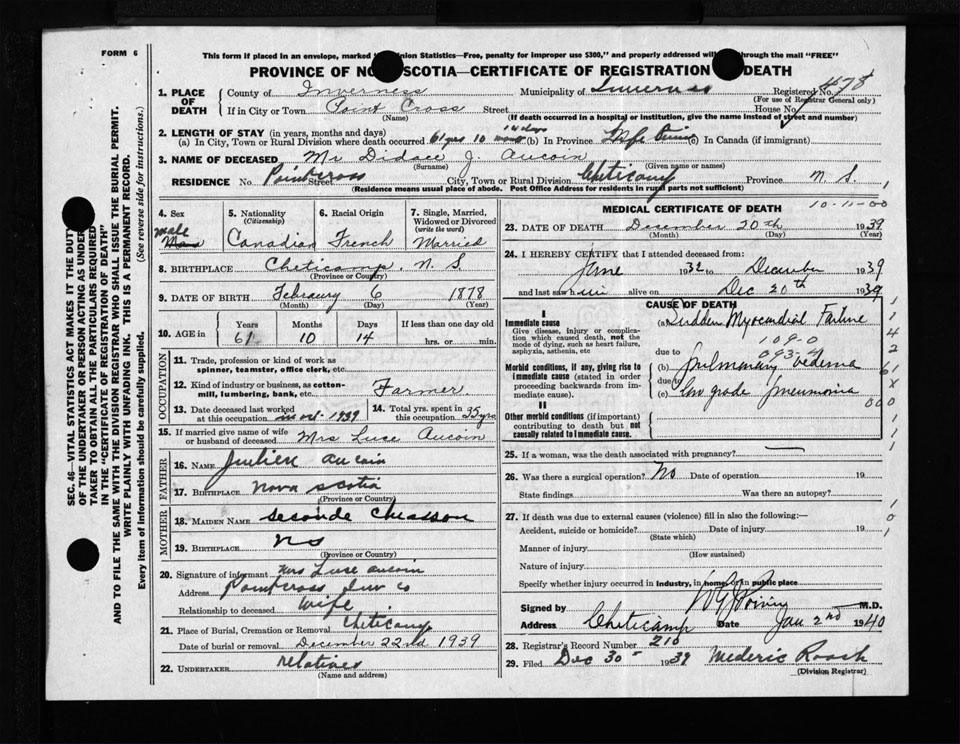 FORM 6
This form if placed in an envelope, marked nion Statistics—Free, penalty for improper use $300," and properly addressed will through the mail "FREE"
PROVINCE OF NO SCOTIA—CERTIFICATE OF REGISTRATION DEATH
SEC. 46—VITAL STATISTICS ACT MAKES IT THE DUT
OF THE UNDERTAKER OR PERSON ACTING AS UNDER
TAKER TO OBTAIN ALL THE PARTICULARS REQUIRED
IN THE "CERTIFICATE OF REGISTRATION OF DEATH"
AND TO FILE THE SAME WITH THE DIVISION REGISTRAR WHO SHALL ISSUE THE BURIAL PERMIT.
WRITE PLAINLY WITH UNFADING INK. THIS IS A PERMANENT RECORD.
Every item of information should be carefully supplied. (See reverse side for instructions.)
1. PLACE OF DEATH County of Inverness Municipality of Inverness Registered No. 4178
(For use of Registrar General only)
If in City or Town Point Cross Street House No.
(Name) (If death occurred in a hospital or institution, give the name instead of street and number)
2. LENGTH OF STAY (in years, months and days)
(a) In City, Town or Rural Division where death occurred 61 yrs 10 mos 14 days (b) In Province (c) In Canada (if immigrant)
3. NAME OF DECEASED Mr Didace J. Aucoin
(Surname) (Given name or names)
RESIDENCE No. Pointcross Street City, Town or Rural Division Cheticamp Province N. S.
(Residence means usual place of abode. Post Office Address for residents in rural parts not sufficient)
4. Sex male
5. Nationality (Citizenship) Canadian
6. Racial Origin French
7. Single, Married, Widowed or Divorced (write the word) Married
8. BIRTHPLACE Cheticamp. N. S.
(Province or Country)
9. DATE OF BIRTH Febraury 6 1878
(Month) (Day) (Year)
10. AGE in Years Months Days If less than one day old
61 10 14 hrs. or min.
OCCUPATION
11. Trade, profession or kind of work as spinner, teamster, office clerk, etc.
12. Kind of industry or business, as cotton-mill, lumbering, bank, etc. Farmer.
13. Date deceased last worked at this occupation 1939
14. Total yrs. spent in this occupation 35 yrs
15. If married give name of wife or husband of deceased Mrs Luse Aucoin
FATHER
16. NAME Julien aucoin
17. BIRTHPLACE Nova Scotia
(Province or Country)
MOTHER
18. MAIDEN NAME Seconde Chiasson
19. BIRTHPLACE NS
(Province or Country)
20. Signature of informant Mrs Luse aucoin
Address Pointcross Inv Co
Relationship to deceased wife
21. Place of Burial, Cremation or Removal Cheticamp
Date of burial or removal December 22nd 1939
22. UNDERTAKER relatives
(Name and address)
MEDICAL CERTIFICATE OF DEATH 10-11-00
23. DATE OF DEATH December 20th 1939
(Month) (Day) (Year)
24. I HEREBY CERTIFY that I attended deceased from:
June 1932 to December 1939
and last saw him alive on Dec 20th 1939
CAUSE OF DEATH
I
Immediate cause
Give disease, injury or complication which caused death, not the mode of dying, such as heart failure, asphyxia, asthenia, etc
(a) Sudden Myocardial Failure
109-0
093-
due to
Morbid conditions, if any, giving rise to immediate cause (stated in order proceeding backwards from immediate cause).
(b) pulmonary oedema
due to
(c) low grade pneumonia
II
Other morbid conditions (if important) contributing to death but not causally related to immediate cause.
25. If a woman, was the death associated with pregnancy?
26. Was there a surgical operation? No Date of operation 19
State findings Was there an autopsy?
27. If death was due to external causes (violence) fill in also the following:—
Accident, suicide or homicide? Date of injury 19
(State which)
Manner of injury
(How sustained)
Nature of injury
Specify whether injury occurred in industry, in home, or in public place
Signed by M.D.
Address Cheticamp Date Jan 2nd 1940
28. Registrar's Record Number 210
29. Filed Dec 30 1939 Mederic Roach
(Division Registrar)